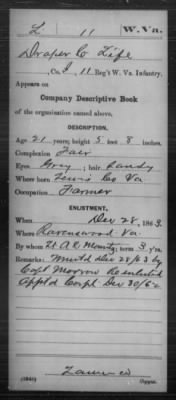 L 11 W. Va.
Draper C. Life
Co. I, 11 Reg't W. Va. Infantry.
Appears on
Company Descriptive Book
of the organization named above.
DESCRIPTION.
Age 21 years; height 5 feet 8 inches.
Complexion Fair
Eyes Gray; hair Sandy
Where born Lewis Co Va
Occupation Farmer
ENLISTMENT.
When Dec 28, 1863.
Where Ravenswood Va.
By whom Lt A R; term 3 y'rs.
Remarks: Must'd Dec 28/63 by
Capt Morrow Reenlisted
Appt'd Corpl Dec 30/62
Copyist.